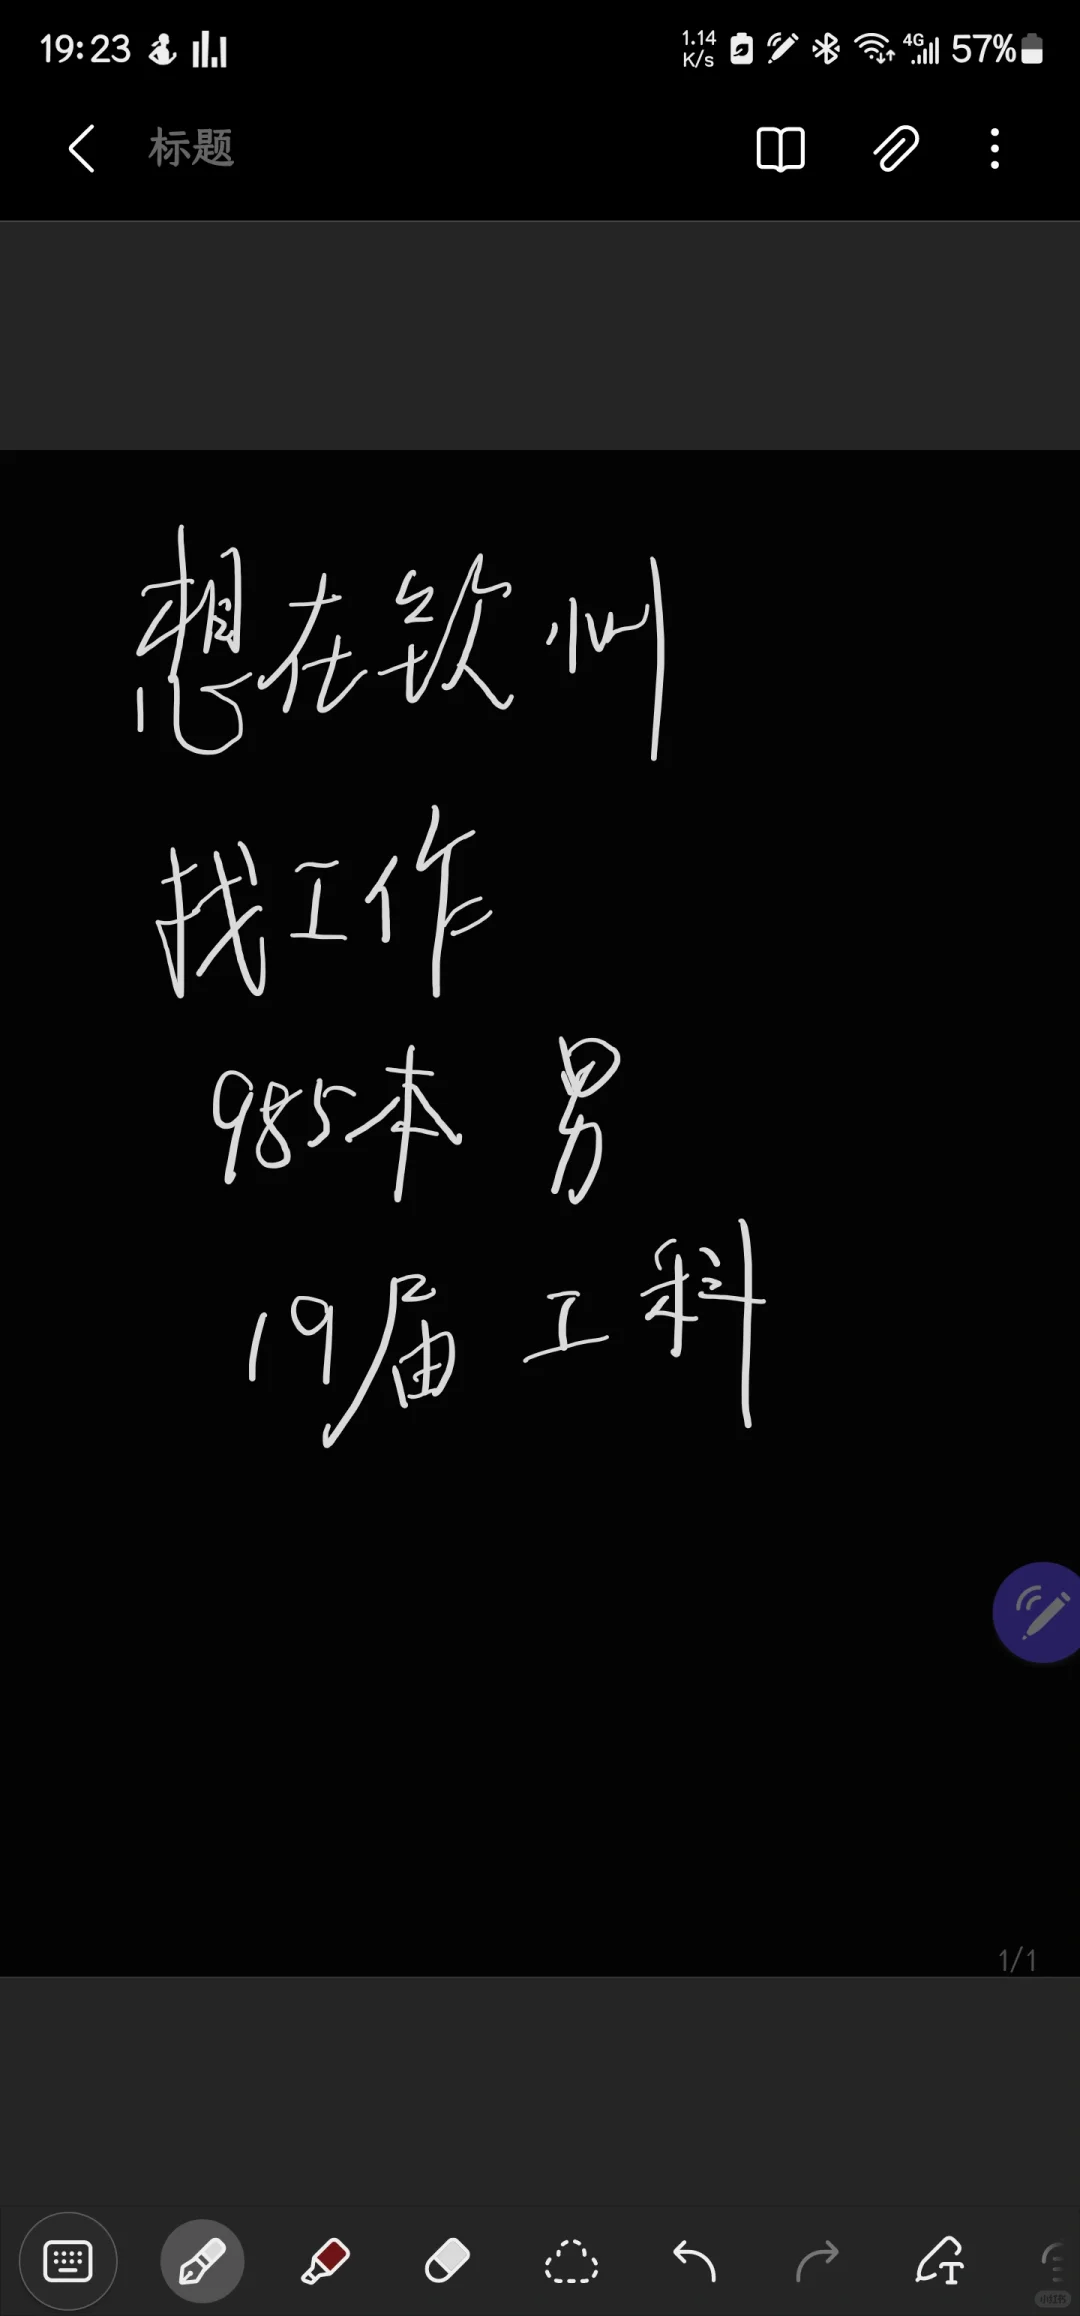 19:23
1.14 K/s
4G
57%
标题
想在钦州
找工作
985本 男
19届 工科
1/1
T
小红书